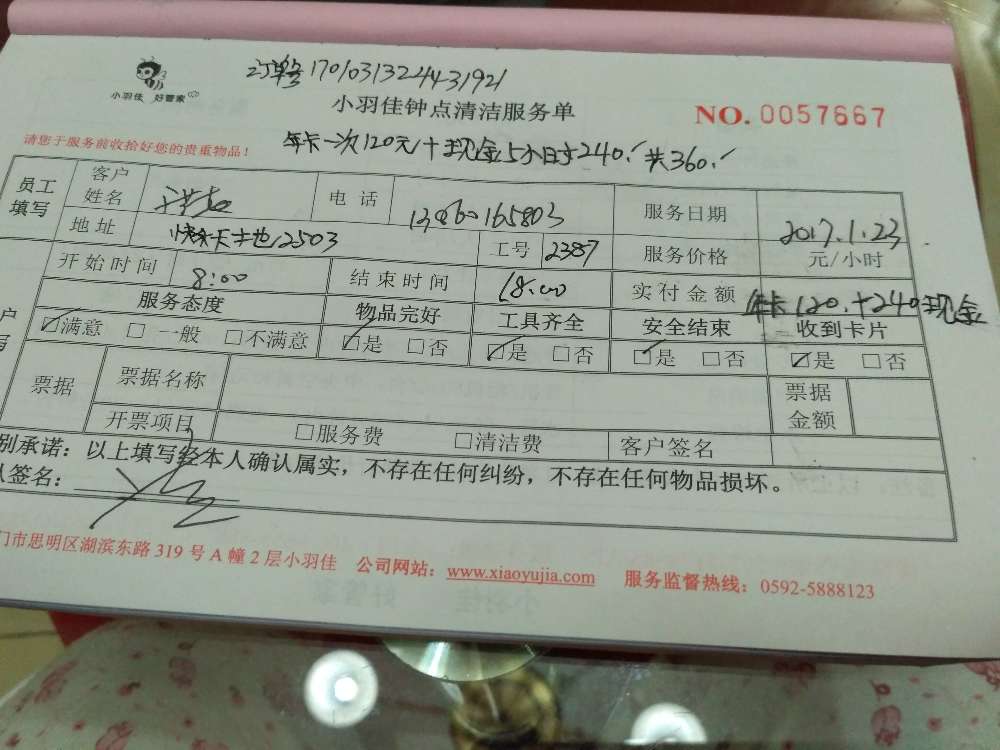 订单号1701031324431921
小羽佳 好管家
小羽佳钟点清洁服务单
NO. 0057667
请您于服务前收拾好您的贵重物品！
年卡一次120元+现金5小时240. 共360.
员工填写 客户姓名 电话 服务日期 2017.1.23
地址 2503 工号 2387 服务价格 元/小时
开始时间 8:00 结束时间 18:00 实付金额 年卡120.+240现金
服务态度 物品完好 工具齐全 安全结束 收到卡片
☑满意 □一般 □不满意 ☑是 □否 ☑是 □否 ☑是 □否 ☑是 □否
票据 票据名称 票据金额
开票项目 □服务费 □清洁费 客户签名
别承诺：以上填写经本人确认属实，不存在任何纠纷，不存在任何物品损坏。
人签名：
门市思明区湖滨东路 319 号 A 幢 2 层小羽佳 公司网站：www.xiaoyujia.com 服务监督热线：0592-5888123